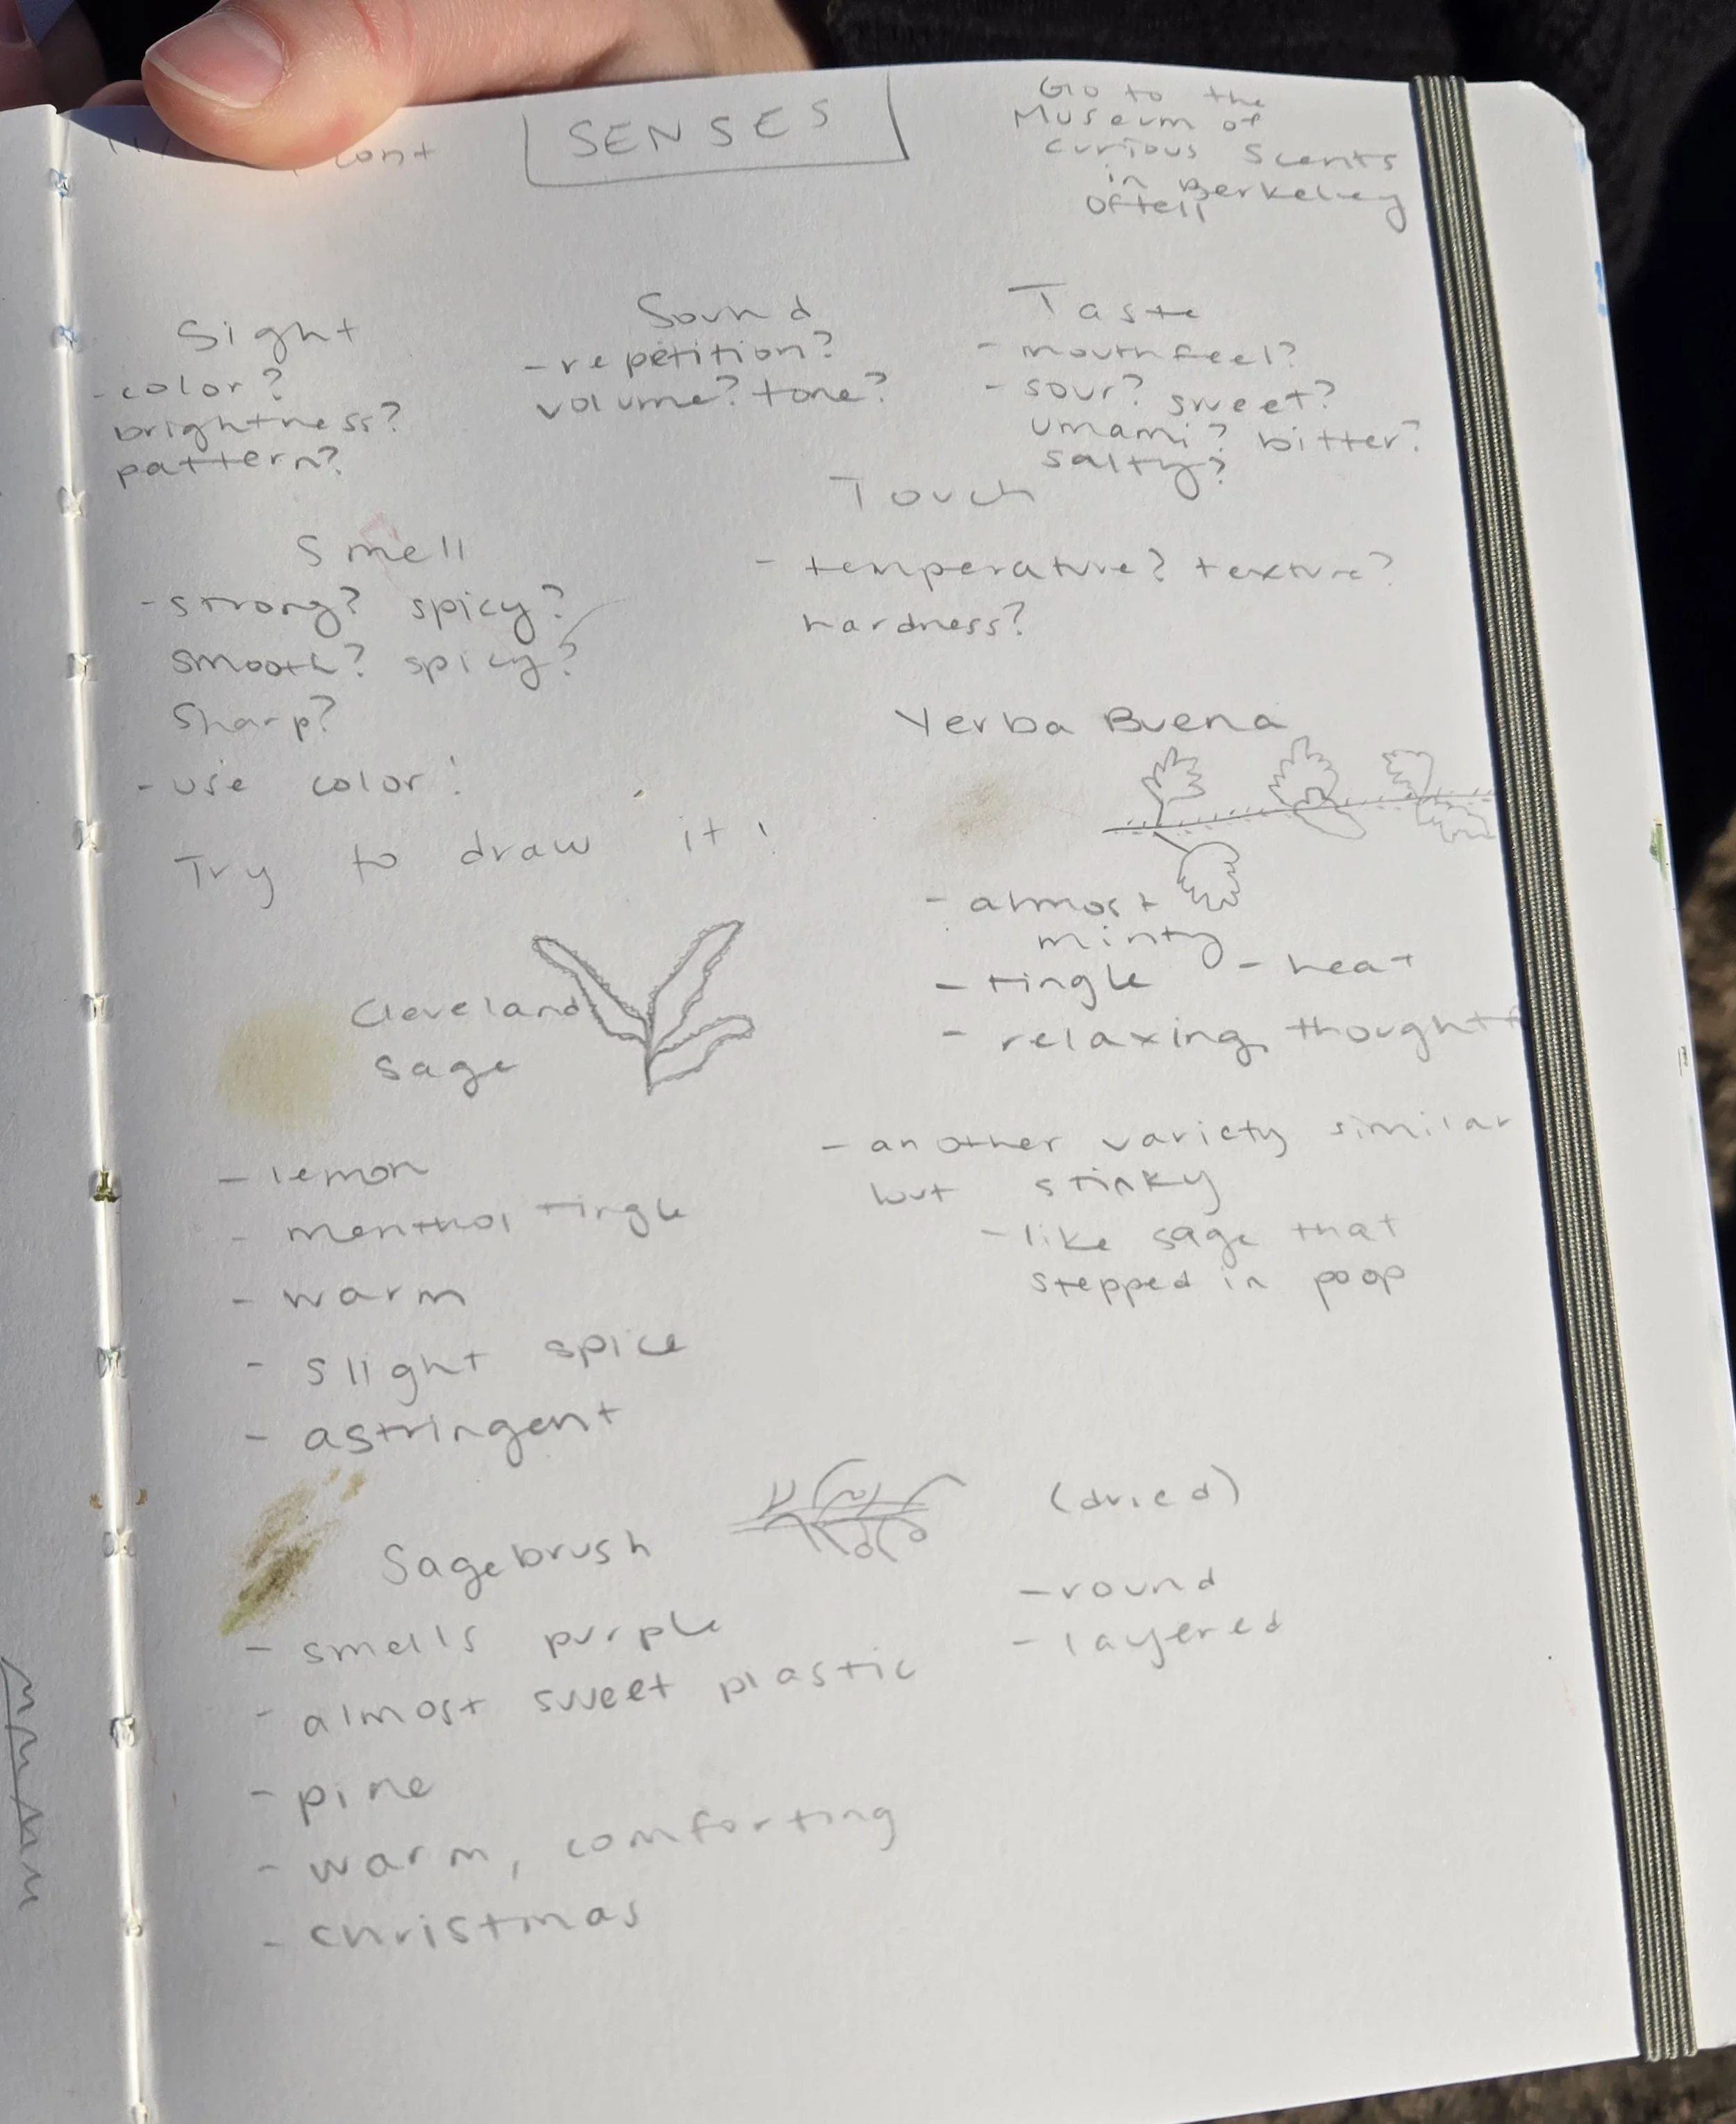 cont
SENSES
Go to the
Museum of
Curious Scents
in Berkeley
Sight
- color?
brightness?
pattern?
Sound
- repetition?
volume? tone?
Taste
- mouthfeel?
- sour? sweet?
umami? bitter?
salty?
Smell
- strong? spicy?
smooth? spicy?
Sharp?
- use color!
Try to draw it!
Touch
- temperature? texture?
hardness?
Yerba Buena
- almost
minty
- tingle - heat
- relaxing,
- another variety similar
but stinky
- like sage that
stepped in poop
Cleveland
Sage
- lemon
- menthol tingle
- warm
- slight spice
- astringent
Sagebrush
- smells purple
- almost sweet plastic
- pine
- warm, comforting
- christmas
(dried)
- round
- layered